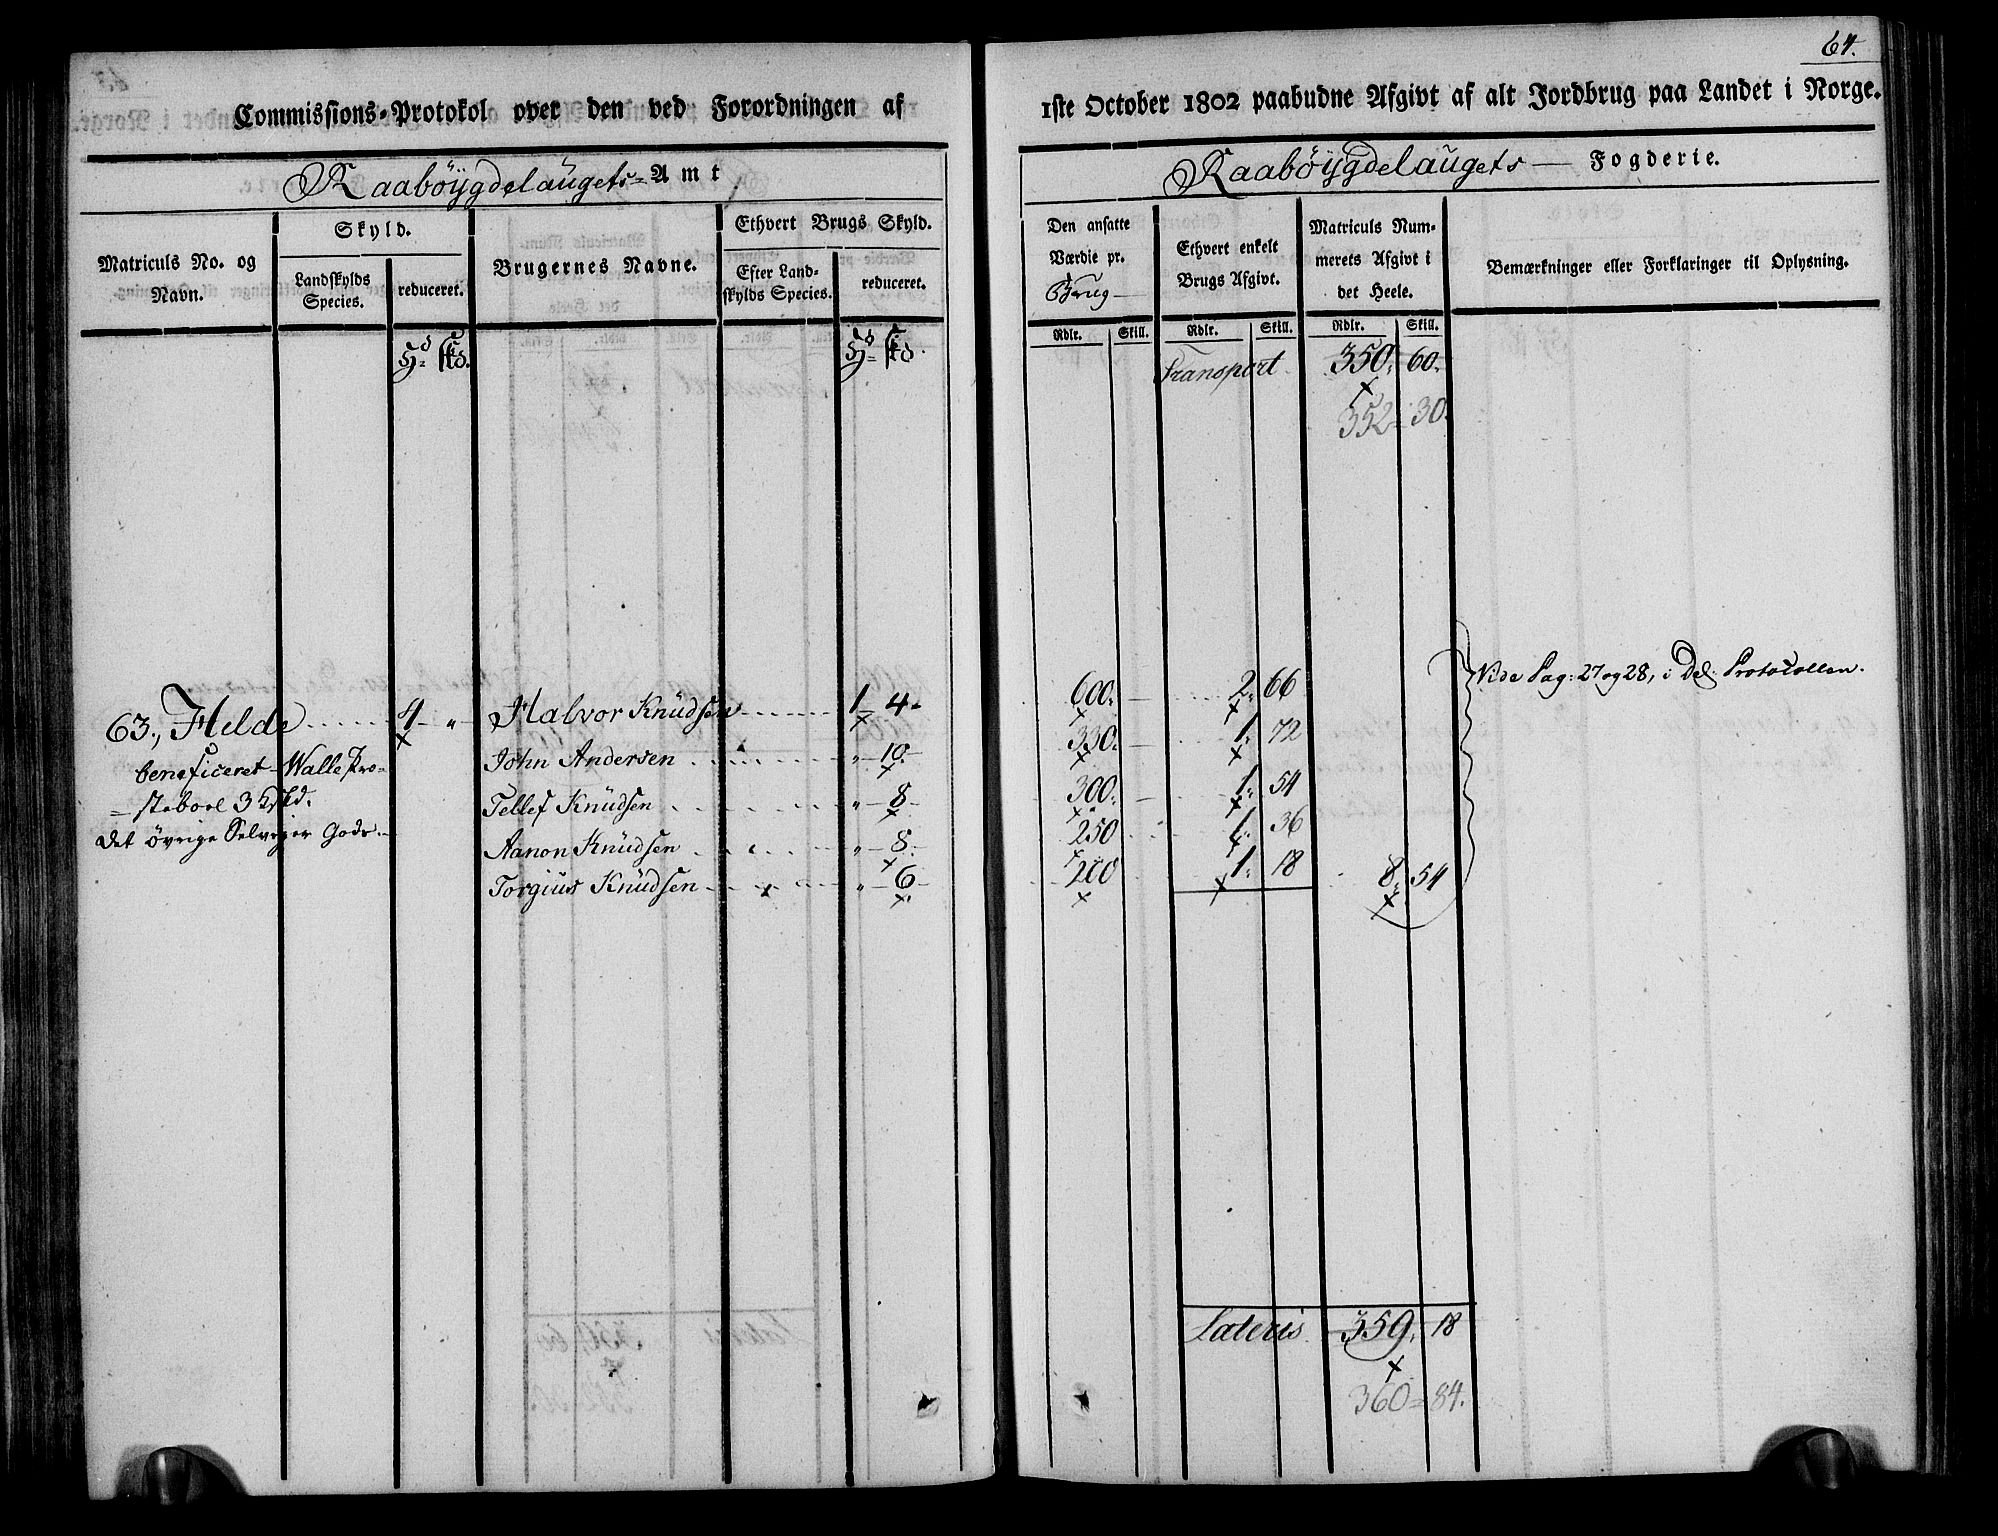 64.
Commissions-Protokol over den ved Forordningen af 1ste October 1802 paabudne Afgivt af alt Jordbrug paa Landet i Norge.
Raabøÿgdelaugets Amt
Raabøÿgdelaugets Fogderie.
Matriculs No. og Navn.
Skyld.
Landskylds Species.
reduceret.
Brugernes Navne.
Ethvert Brugs Skyld.
Efter Landskylds Species.
reduceret.
Den ansatte Værdie pr. Brug
Ethvert enkelt Brugs Afgivt.
Matriculs Nummerets Afgivt i det Heele.
Bemærkninger eller Forklaringer til Oplysning.
Rdlr. Skill. Rdlr. Skill. Rdlr. Skill.
Transport 350. 60.
352 = 30.
Vide Pag: 27 og 28, i Del. Protocollen.
63., Helde 4 " Halvor Knudsen 1 4 600. 2. 66
beneficeret Walle Pro- John Andersen " 10. 330. 1. 72
= steboel 3 Tellef Knudsen " 8 300. 1. 54
det øvrige Selveyer Gods. Aanon Knudsen " 8. 250 1. 36
Torgius Knudsen " 6 200 1. 18 8. 54
Lateris 359. 18
360 = 84.